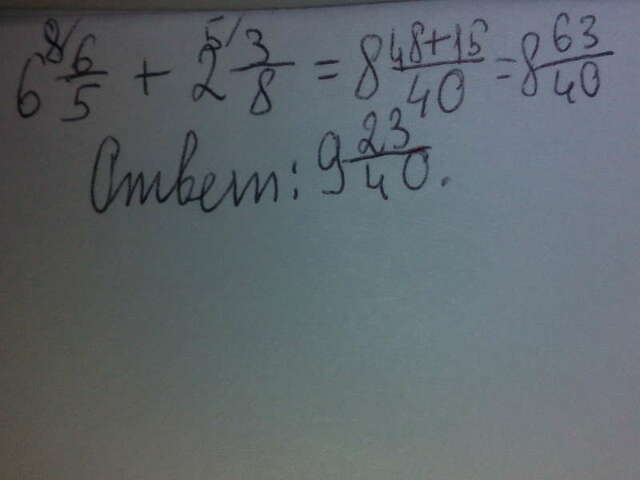 6 ⁸⁄ 6/5 + 2 ⁵⁄ 3/8 = 8 48+15/40 = 8 63/40
Ответ: 9 23/40.